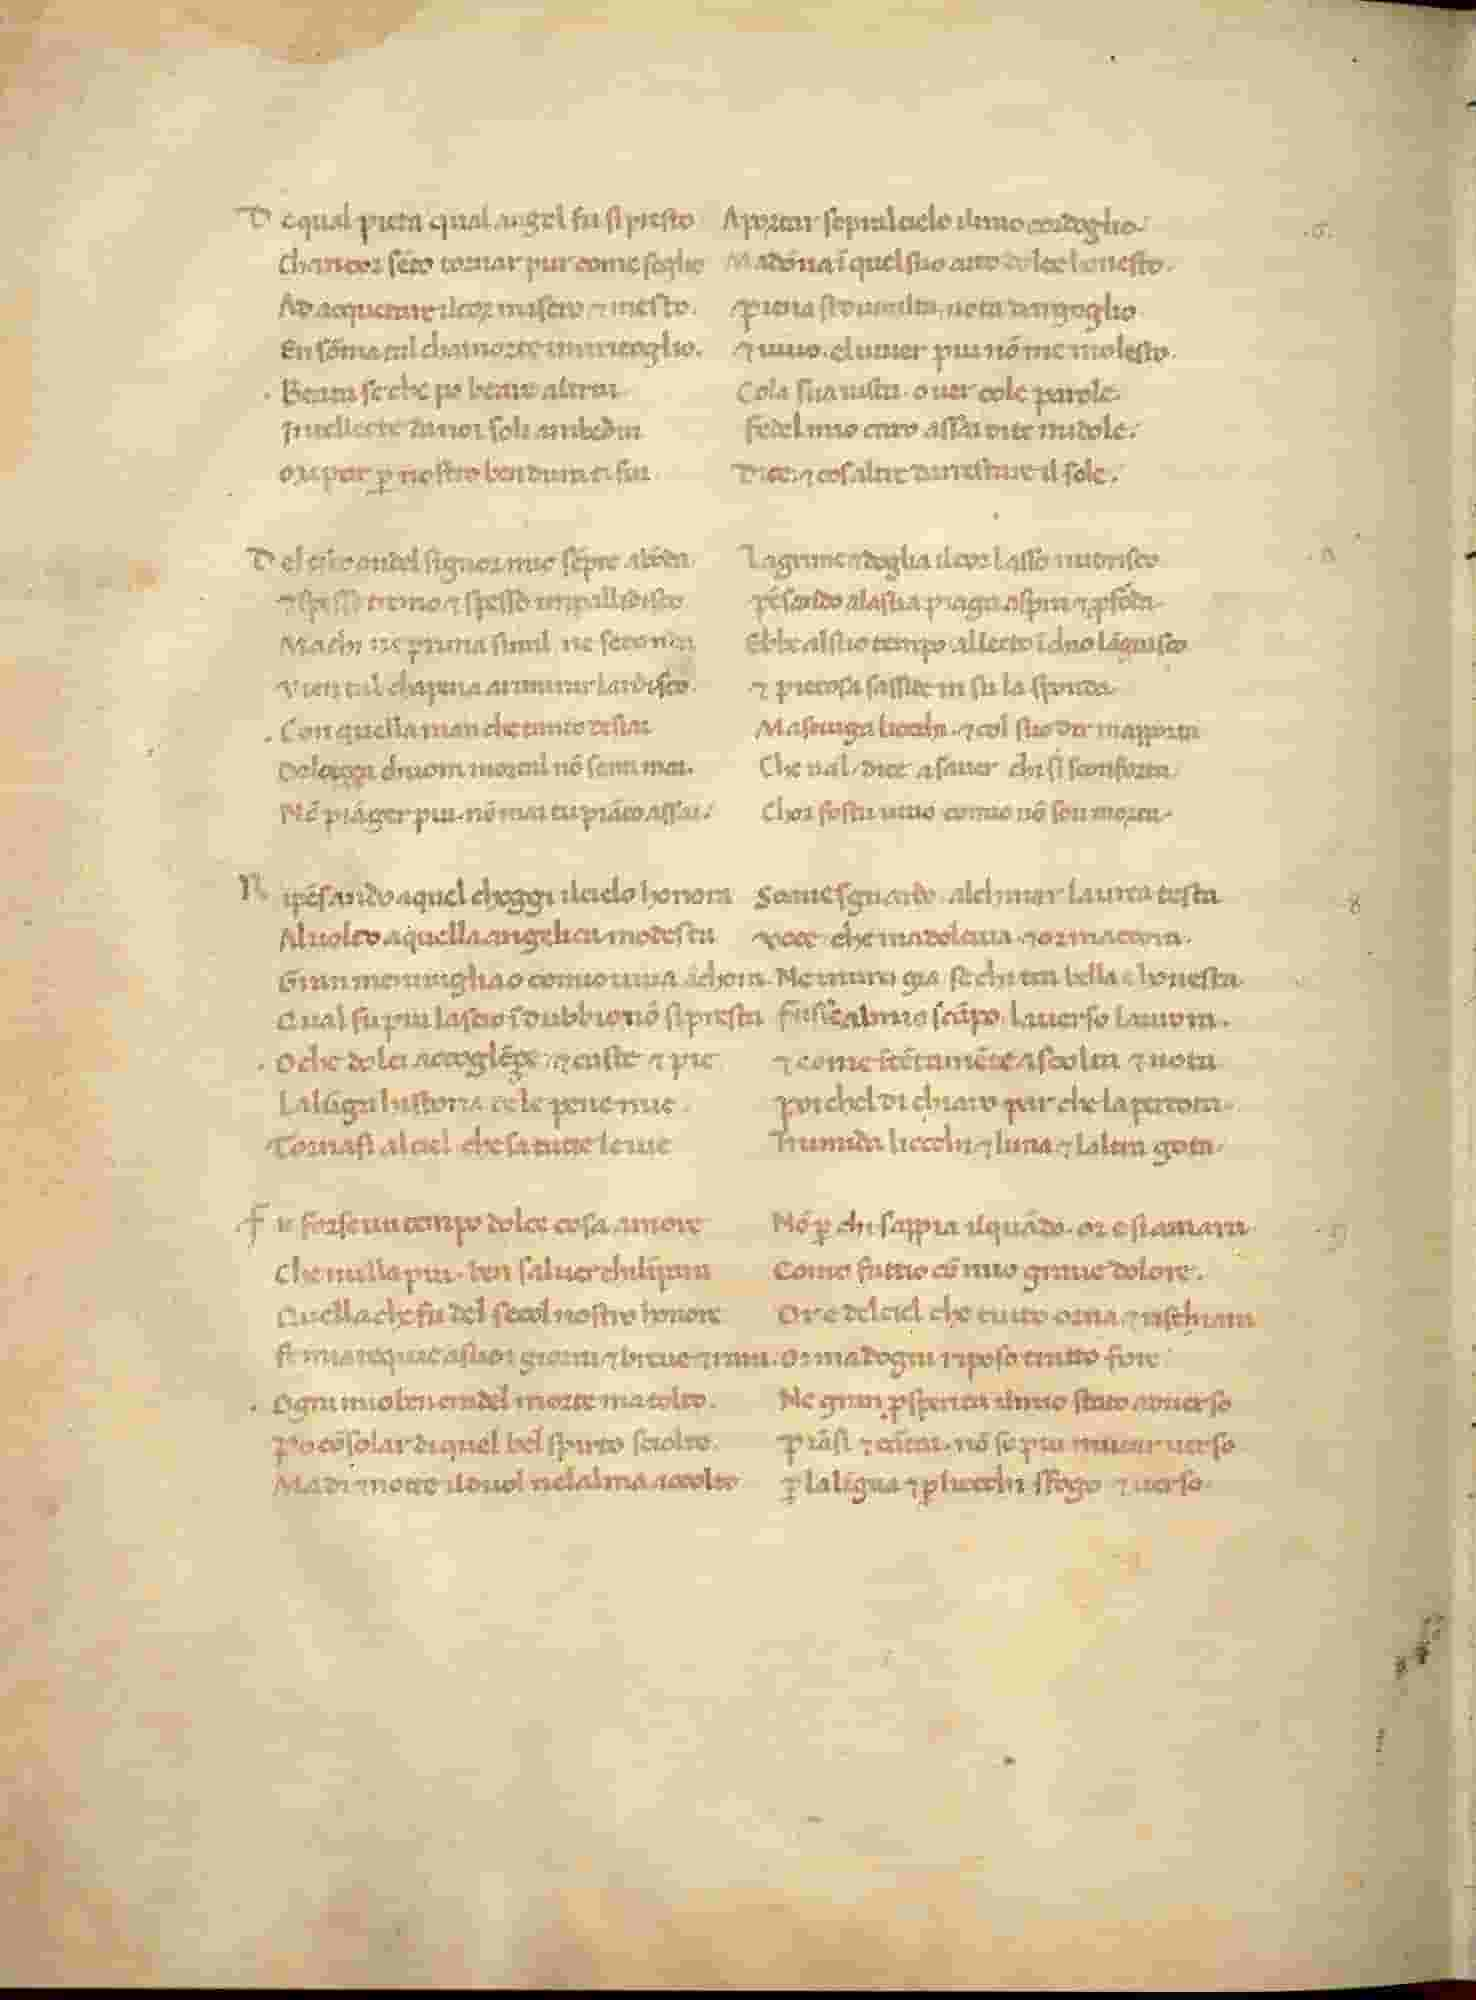 De qual pieta qual angel fu si presto Aportar sepral cielo il mio cordoglio.
Chancor sēto tornar pur come soglio Madōna ī quel suo atto dolce honesto.
Ad acquetare il cor misero ⁊ mesto. piena si dumilta, uota dargoglio
En sōma tal cha morte i mi ritoglio. ⁊ uiuo. el uiuer piu nō me molesto.
Beata se che po beare altrui Cola sua uista. ouer cole parole.
Intellecte da noi soli ambedui fedel mio caro assai di te mi dole.
Ma pur p̱ nostro ben dura ti fui Dice. ⁊ cosaltre darrestare il sole.
Del cibo ondel signor mio sēpre abōda. Lagrime ⁊ doglia il cor lasso nudrisco
⁊ spesso tremo ⁊ spesso impallidisco pēsando ala sua piaga aspra ⁊ p̱fōda.
Ma chi ne prima simil ne seconda Ebbe al suo tempo al lecto ī chio lāguisco
Vien tal cha pena a rimirar lardisco. ⁊ pietosa sasside in su la sponda.
Con quella man che tanto desiai Masciuga li occhi. ⁊ col suo dir mapporta
Dolceçça chuom mortal nō senti mai. Che ual dice a sauer chi si sconforta
Nō piāger piu. nō mai tu piāto assai. Chor fostu uiuo comio nō son morta.
Ripēsando a quel choggi il cielo honora Soaue sguardo. al chinar laurea testa
Al uolto a quella angelica modesta voce. che madolciua. ⁊ or maccora.
Gran merauiglia o comio uiua āchora. Ne uiurei gia se chi tra bella e honesta
Qual fu piu lascio ī dubbio nō si presta fusse al mio scāpo. la uerso laurora.
O che dolci accoglēze. ⁊ caste ⁊ pie ⁊ come ītētamēte ascolta ⁊ nota
La lūga historia de le pene mie. Poi chel di chiaro par che la percota.
Tornasi al ciel che sa tutte le uie Humida li occhi ⁊ luna ⁊ laltra gota.
Fu forse un tempo dolce cosa amore Nō p̱ chi sappia il quādo. or e si amara
Che nulla piu. ben sal uer chi limpara Como fattio cō mio graue dolore.
Quella che fu del secol nostro honore Ore del ciel che tutto orna ⁊ rischiara
fe mia requie a suoi giorni ⁊ breue ⁊ rara. Or ma dogni riposo tratto fore
Ogni mio ben crudel morte ma tolto. Ne gran p̱sperita il mio stato aduerso
Po cōsolar di quel bel spirto sciolto. piāsi ⁊ cātai. nō so piu mutar uerso
Ma di ⁊ notte il duol nelalma accolto p̱ la līgua ⁊ p̱ li occhi sfogo ⁊ uerso.